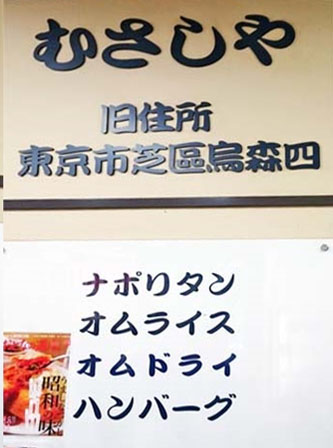 むさしや
旧住所
東京市芝區烏森四
ナポリタン
オムライス
オムドライ
ハンバーグ
昭和の味